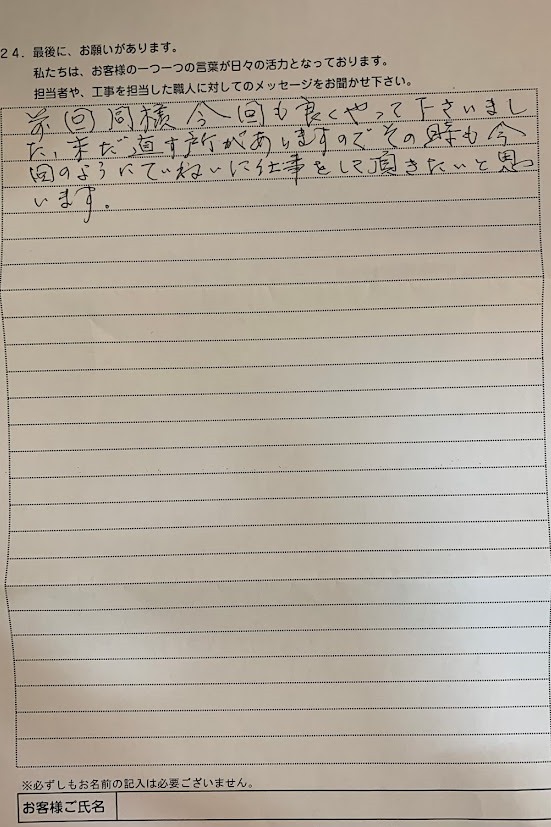 24．最後に、お願いがあります。
私たちは、お客様の一つ一つの言葉が日々の活力となっております。
担当者や、工事を担当した職人に対してのメッセージをお聞かせ下さい。
前回同様今回も良くやって下さいまし
た、未だ直す所がありますのでその時も今
回のようにていねいに仕事をして頂きたいと思
います。
※必ずしもお名前の記入は必要ございません。
お客様ご氏名